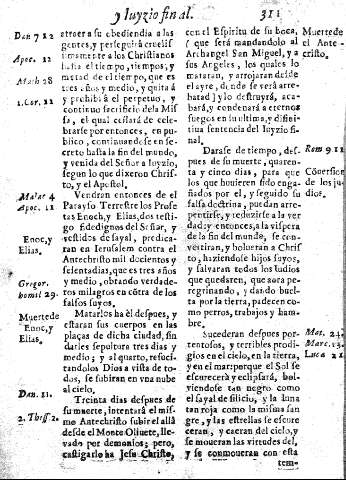 y Iuyzio final.
311
Dan 7 12
Apoc. 12
Math 28
1. Cor. 11
Malac 4
Apoc. 11
Enoc, y
Elias.
Gregor.
homil 29.
Muertede
Enoc, y
Elias.
Dan. 11.
2. Thess. 2.
atraer a su obediendia a las
gentes, y perseguirà cruelis
simamente a los Christianos
hasta el tiempo, tiempos, y
metad de el tiempo, que es
tres años y medio, y quitará
y prohibirá el perpetuo, y
continuo sacrificio de la Mis
sa, el qual cessará de cele-
brarse por entonces, en pu-
blico, continuandose en se-
creto hasta la fin del mundo,
y venida del Señor a Iuyzio,
segun lo que dixeron Chris-
to, y el Apostol.
Vendràn entonces de el
Parayso Terrestre los Profe
tas Enoch, y Elias, dos testi
go fidedignos del Señor, y
vestidos de sayal, predica-
ran en Ierusalem contra el
Antechristo mil docientos y
sesentadias, que es tres años
y medio, obrando verdade-
ros milagros en côtra de los
falsos suyos.
Matarlos há él despues, y
estaran sus cuerpos en las
plaças de dicha ciudad, sin
darles sepultura tres dias y
medio; y al quarto, resuci-
tandolos Dios a vista de to-
dos, se subiran en vna nube
al cielo.
Treinta dias despues de
su muerte, intentará el mis-
mo Antechristo subir el allá
desde el Monte Oliuete, lle-
vado por demonios; pero,
castigarlo ha Jesu Christo,
cen el Espiritu de su boca,
(que será mandandolo al
Archangel San Miguel, y a
sus Angeles, los quales lo
mataran, y arrojaran desde
el ayre, donde se verá arre-
batad] y lo destruyrá, aca-
bará, y condenará a eternos
fuegos en su vltima, y difini-
tiua sentencia del Iuyzio fi-
nal.
Darase de tiempo, des-
pues de su muerte, quaren-
ta y cinco dias, para que
los que huuieren sido enga-
ñados por el, y seguido su
falsa doctrina, puedan arre-
pentirse, y reduzirse a la ver
dad; y entonces, a la vispera
de la fin del mundo, se con-
vestiran, y bolueran a Chris-
to, haziendose hijos suyos,
y salvaran todos los Iudios
que quedaren, que aora pe-
regrinando, y dando buel-
ta por la tierra, padecen co-
mo perros, trabajos y ham-
bre.
Sucederan despues por-
tentosos, y terribles prodi-
gios en el cielo, en la tierra,
y en el mar: porque el Sol se
escurecerá y eclipsará, bol-
viendose tan negro como
el sayal de silicio, y la luna
tan roja como la misma san
gre, y las estrellas se escure
ceran, y caeran del cielo, y
se moueran las virtudes del,
y se conmoueran con esta
tem-
Muertede
el Ante-
christo.
Rom 9.11
Côuersion
de los ju-
dios.
Mat. 24.
Marc. 13.
Luca 21.